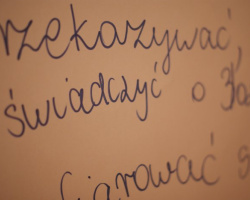 rzekazywać,
świadczyć o
iarować